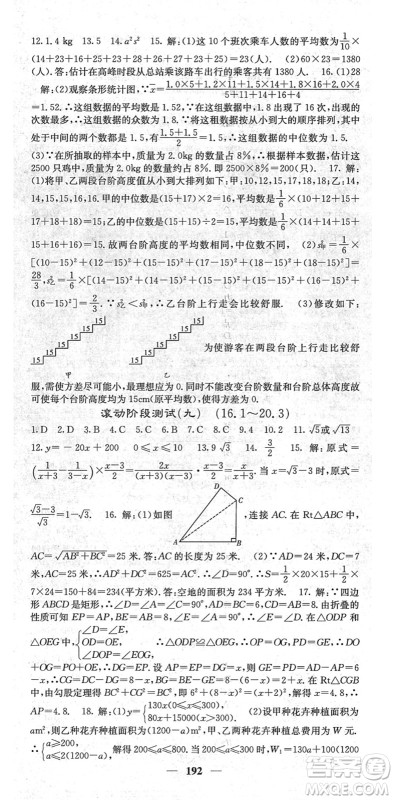 12. 1.4 kg　13. 5　14. a²s²　15. 解:(1)这 10 个班次乘车人数的平均数为 1/10
×(14+23+16+25+23+28+26+27+23+25)=23(人). (2)60×23=1380
(人). 答:估计在高峰时段从总站乘该路车出行的乘客共有 1380 人.　16. (1)28
(2)观察条形统计图,∵x̄=(1.0×5+1.2×11+1.5×14+1.8×16+2.0×4)/(5+11+14+16+4)
=1.52. ∴这组数据的平均数是 1.52. ∵在这组数据中,1.8 出现了 16 次,出现的
次数最多,∴这组数据的众数为 1.8. ∵将这组数据按从小到大的顺序排列,其中
处于中间的两个数都是 1.5,有 (1.5+1.5)/2=1.5,∴这组数据的中位数为 1.5.
(3)∵在所抽取的样本中,质量为 2.0kg 的数量占 8%,∴根据样本数据,估计这
2500 只鸡中,质量为 2.0kg 的数量约占 8%. ∵2500×8%=200(只).　17. 解:
(1)将甲、乙两段台阶高度值从小到大排列如下,甲:10,15,17,18,18;乙:14,
15,15,16,16. 甲的中位数是(15+17)÷2=16,平均数是 1/6×(10+12+15+
17+18+18)=15;乙的中位数是(15+15)÷2=15,平均数是 1/6×(14+14+15+
15+16+16)=15. 故两台阶高度的平均数相同,中位数不同. (2)s²甲=1/6×
[(10-15)²+(12-15)²+(15-15)²+(17-15)²+(18-15)²+(18-15)²]=
28/3,s²乙=1/6×[(14-15)²+(14-15)²+(15-15)²+(15-15)²+(16-15)²
+(16-15)²]=2/3. ∵s²乙<s²甲,∴乙台阶上行走会比较舒服. (3)修改如下:
15 15 15 15 15 15　15 15 15 15 15 15
甲　乙
为使游客在两段台阶上行走比较舒
服,需使方差尽可能小,最理想应为 0. 同时不能改变台阶数量和台阶总体高度,故
可使每个台阶高度均为 15cm(原平均数),使得方差为 0.
滚动阶段测试(九)　(16.1～20.3)
1. D　2. D　3. C　4. C　5. D　6. C　7. B　8. D　9. B　10. 4　11. √5或√13
12. y=-20x+200　0≤x≤10　13. 9.4　14. 3/2　15. 解:原式=
(1/(x+3)-1/(3-x))×(x-3)/2=2x/((x+3)(x-3))×(x-3)/2=x/(x+3). 当 x=√3-3 时,原式=
(√3-3)/√3=1-√3.　16. 解:(1)如图,连接 AC. 在 Rt△ABC 中,
D C A B
AC=√(AB²+BC²)=25 米. 答:AC 的长度为 25 米. (2)∵AD=24 米,DC=7
米,∴AD²+DC²=625=AC²,∴∠D=90°,∴S=1/2×20×15+1/2×24
×7=150+84=234(平方米). 答:空地的面积为 234 平方米.　17. 解:∵四边
形 ABCD 是矩形,∴∠D=∠A=∠C=90°,AD=BC=6,CD=AB=8. 由折叠的
性质可知,EP=AP,∠E=∠A=90°,BE=AB=8. 在△ODP 和
△OEG 中,{∠D=∠E, OD=OE, ∠DOP=∠EOG,∴△ODP≌△OEG,∴OP=OG,PD=GE,∴DO
+OG=PO+OE,∴DG=EP. 设 AP=EP=x,则 PD=GE=AD-AP=6
-x,DG=x,∴CG=8-x,BG=BE-EG=8-(6-x)=2+x. 在 Rt△CGB
中,由勾股定理得 BC²+CG²=BG²,即 6²+(8-x)²=(x+2)²,解得 x=4.8,∴
AP=4.8.　18. (1)y={130x(0≤x≤300), 80x+15000(x>300).　(2)设甲种花卉种植面积为
am²,则乙种花卉种植面积为(1200-a)m²,甲、乙两种花卉种植总费用为 W 元.
∴{a≥200, a≤2(1200-a),解得 200≤a≤800. 当 200≤a≤300 时,W₁=130a+100(1200
192